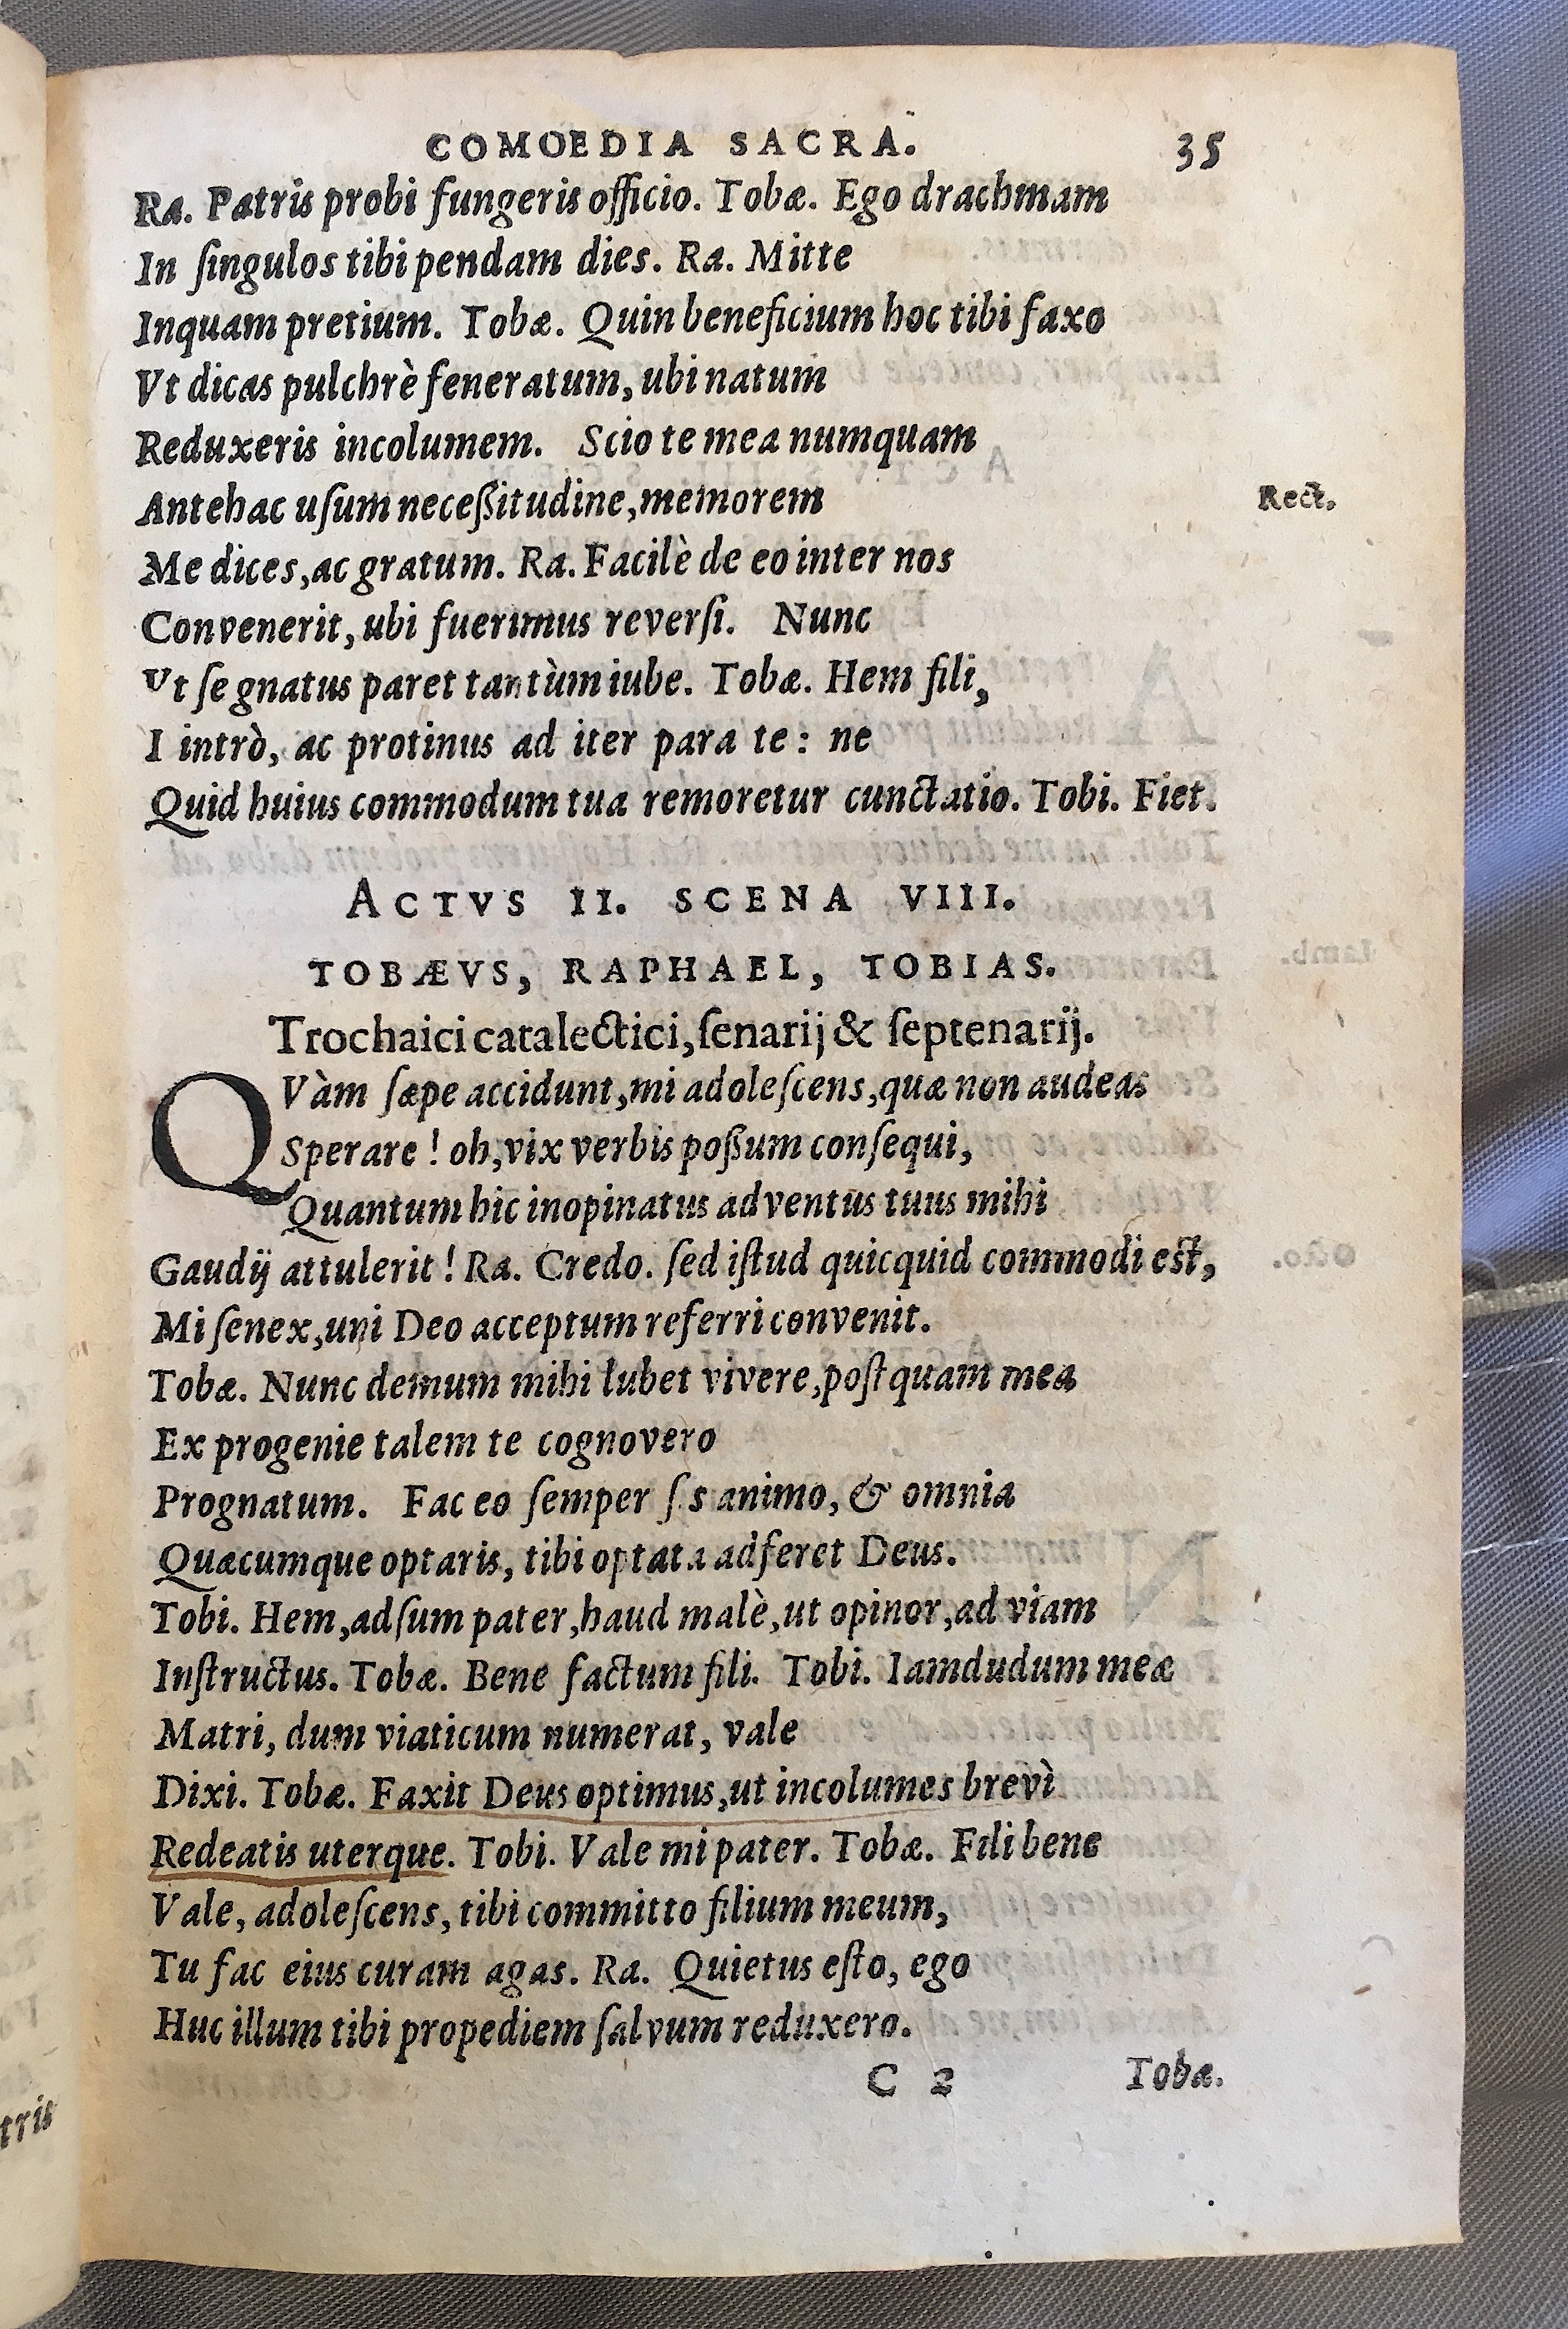 COMOEDIA SACRA. 35
Ra. Patris probi fungeris officio. Tobæ. Ego drachmam
In ſingulos tibi pendam dies. Ra. Mitte
Inquam pretium. Tobæ. Quin beneficium hoc tibi faxo
Vt dicas pulchrè feneratum, ubi natum
Reduxeris incolumem. Scio te mea numquam
Antehac uſum neceßitudine, memorem Rect.
Me dices, ac gratum. Ra. Facilè de eo inter nos
Convenerit, ubi fuerimus reverſi. Nunc
Vt ſe gnatus paret tantùm iube. Tobæ. Hem fili,
I intrò, ac protinus ad iter para te: ne
Quid huius commodum tua remoretur cunctatio. Tobi. Fiet.
ACTVS II. SCENA VIII.
TOBÆVS, RAPHAEL, TOBIAS.
Trochaici catalectici, ſenarij & ſeptenarij.
QVàm ſæpe accidunt, mi adoleſcens, quæ non audeas
Sperare! oh, vix verbis poßum conſequi,
Quantum hic inopinatus adventus tuus mihi
Gaudij attulerit! Ra. Credo. ſed iſtud quicquid commodi est,
Mi ſenex, uni Deo acceptum referri convenit.
Tobæ. Nunc demum mihi lubet vivere, poſtquam mea
Ex progenie talem te cognovero
Prognatum. Fac eo ſemper ſ s animo, & omnia
Quæcumque optaris, tibi optata adferet Deus.
Tobi. Hem, adſum pater, haud malè, ut opinor, ad viam
Inſtructus. Tobæ. Bene factum fili. Tobi. Iamdudum meæ
Matri, dum viaticum numerat, vale
Dixi. Tobæ. Faxit Deus optimus, ut incolumes brevì
Redeatis uterque. Tobi. Vale mi pater. Tobæ. Fili bene
Vale, adoleſcens, tibi committo filium meum,
Tu fac eius curam agas. Ra. Quietus eſto, ego
Huc illum tibi propediem ſalvum reduxero.
C 2 Tobæ.
tris